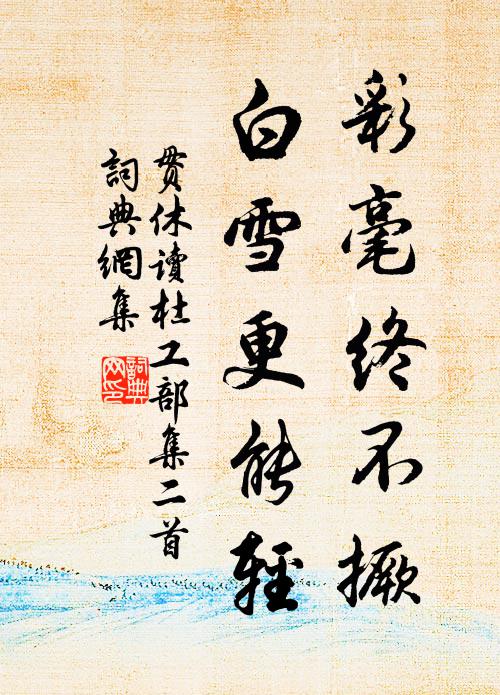 彩毫終不撅
白雪更能輕
貫休讀杜工部集二首
詞典網集
詞典
网印